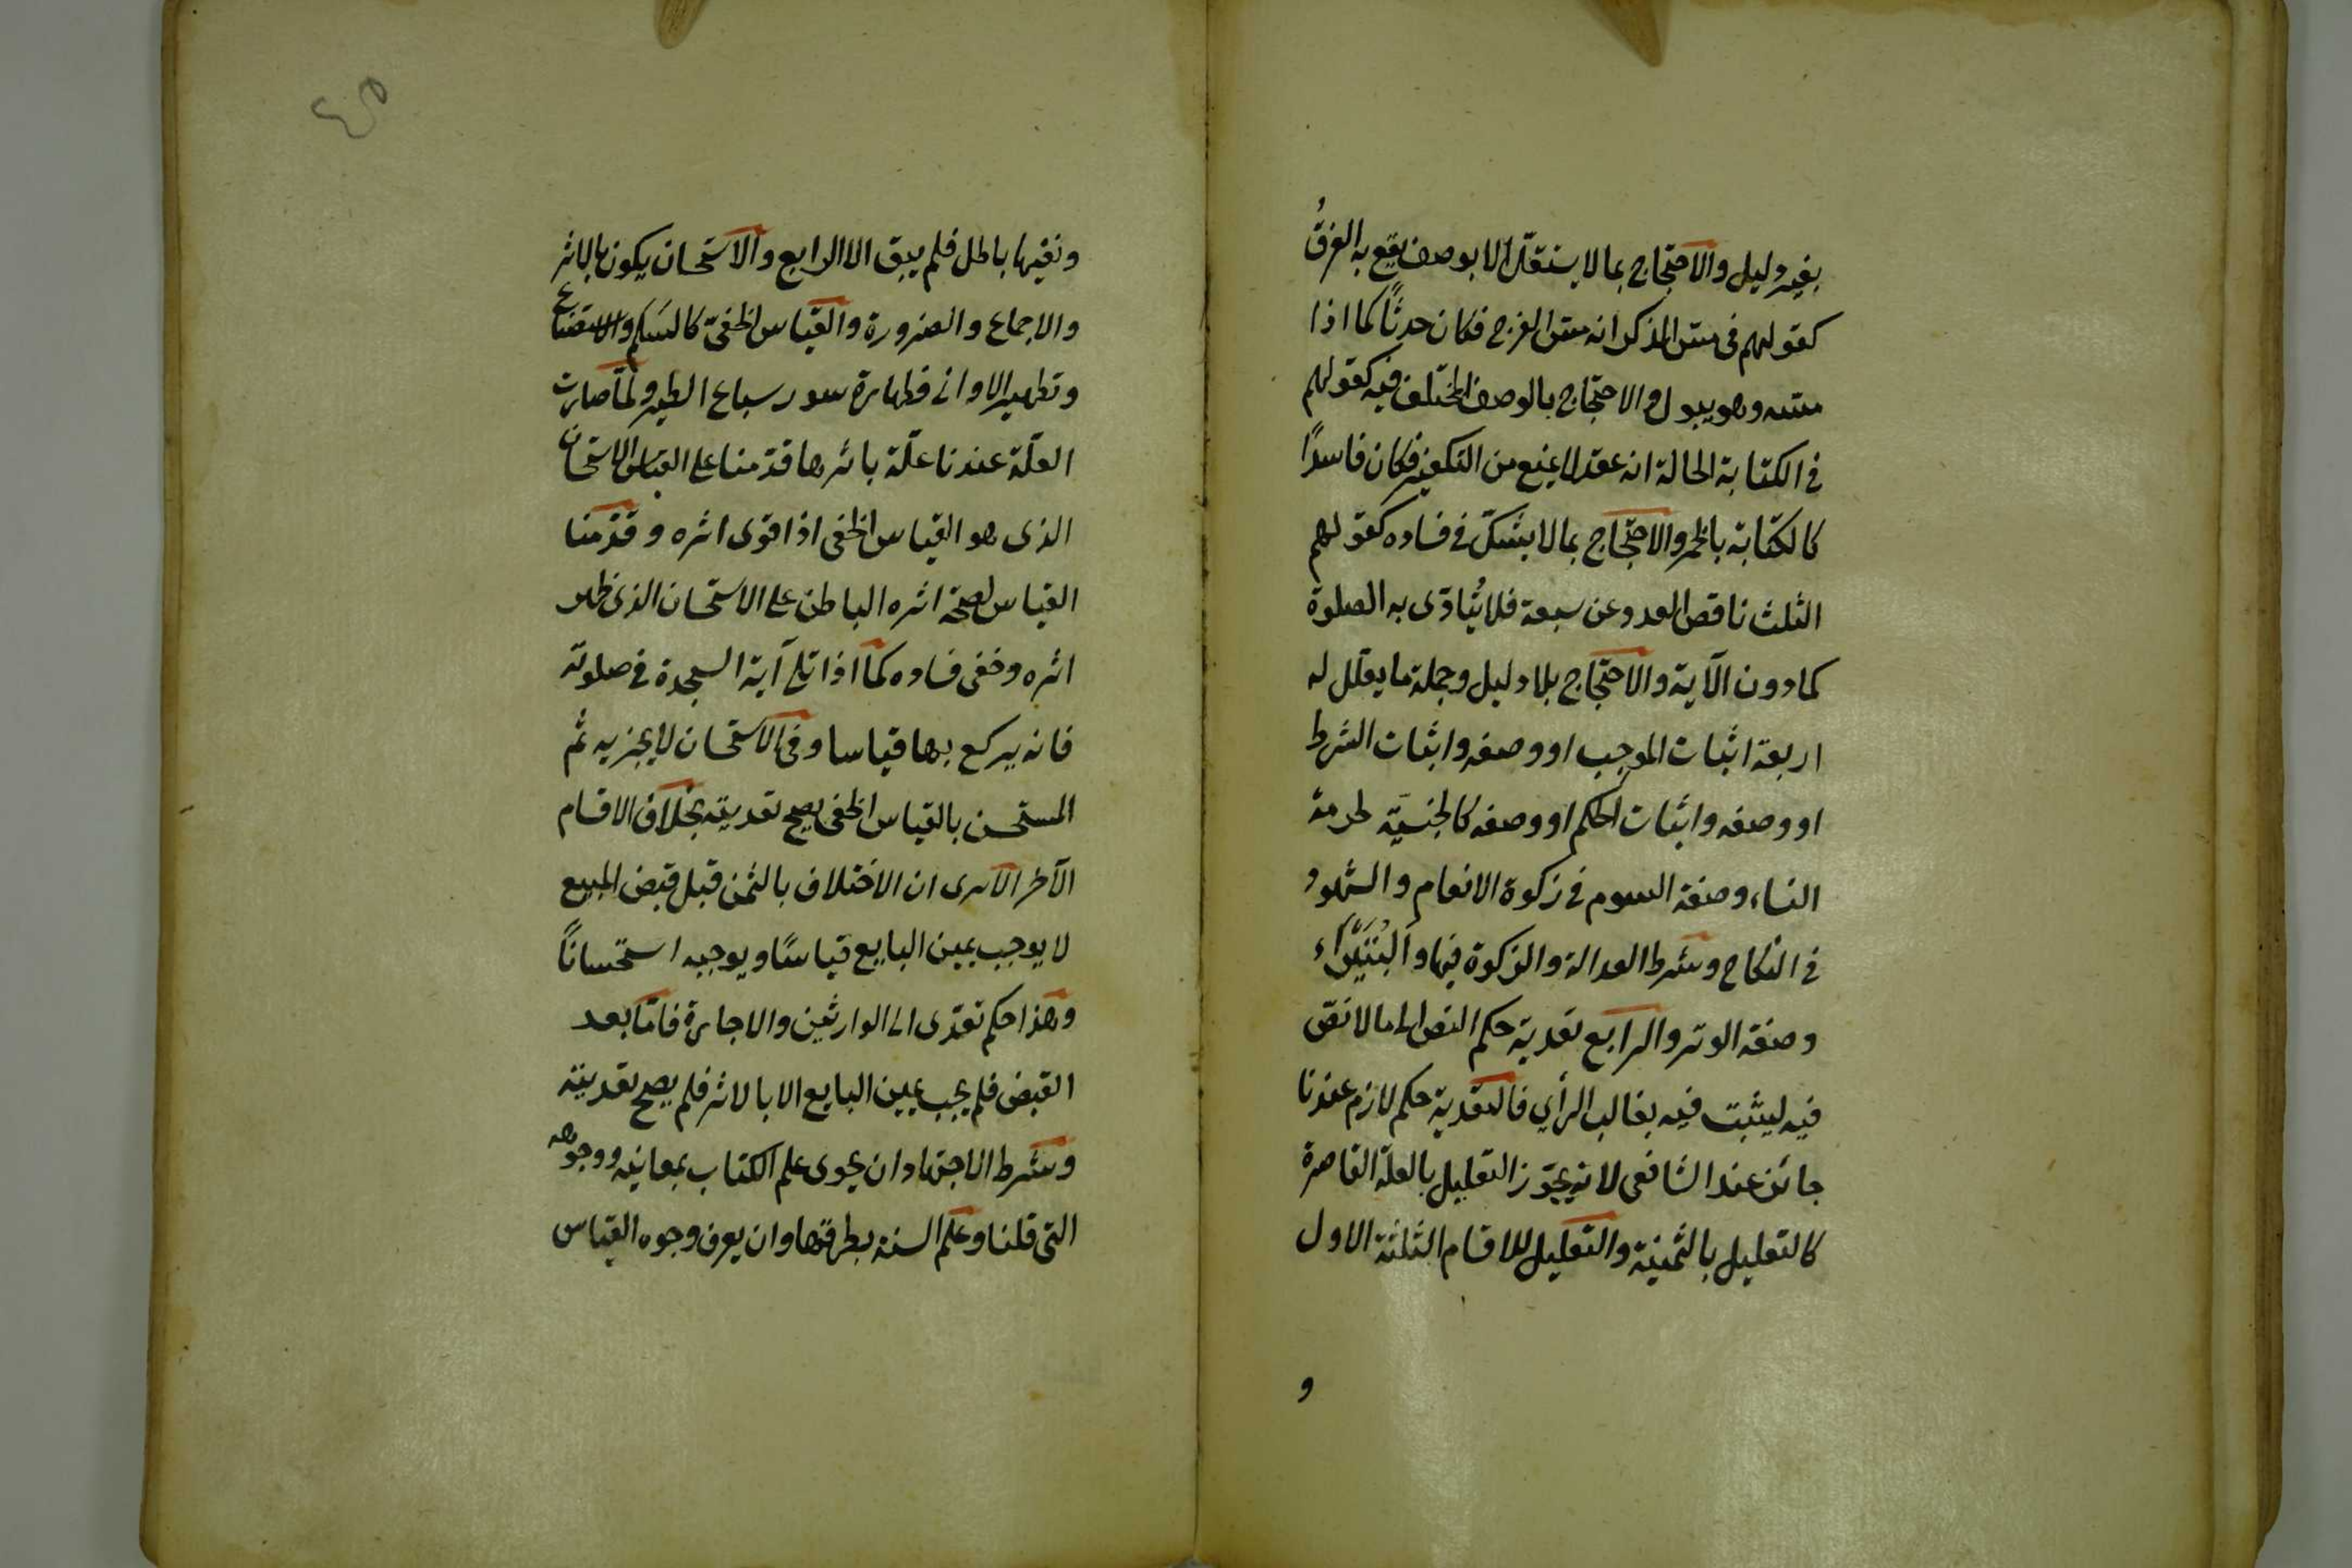 بغير دليل والاحتجاج بما لا يستقل الا بوصف يقع به الفرقُ
كقولهم فى مسّ الذكر انه مسّ الفرج فكان حدثًا كما اذا
مسّه وهو يبول والاحتجاج بالوصف المختلف فيه كقولهم
فى الكتابة الحالة انه عقد لا يمنع من التكفير فكان فاسدًا
كالكتابة بالخمر والاحتجاج بما لا يشكّ فى فساده كقولهم
الثلث ناقص العدد عن سبعة فلا يُتأدّى به الصلوة
كما دون الآية والاحتجاج بلا دليل وجملة ما يعلّل له
اربعة اثبات الموجب او وصفه واثبات الشرط
او وصفه واثبات الحكم او وصفه كالجنسيّة لحرمة
النساء وصفة السوم فى زكوة الانعام والشهود
فى النكاح وشرط العدالة والذكورة فيها والبُتَيْرَاء
وصفة الوتر والرابع تعدية حكم النص الى ما لا نصّ
فيه ليثبت فيه بغالب الرأي فالتعدية حكم لازم عندنا
جائز عند الشافعى لانه يجوّز التعليل بالعلّة القاصرة
كالتعليل بالثمنيّة والتعليل للاقسام الثلثة الاول
و
ونفيها باطل فلم يبق الا الرابع والاستحسان يكون بالاثر
والاجماع والضرورة والقياس الخفىّ كالسَلم والاستصناع
وتطهير الاوانى وطهارة سور سباع الطير ولمّا صارت
العلّة عندنا علّة باثرها قدّمنا على القياس الاستحسان
الذى هو القياس الخفى اذا قوى اثره وقدّمنا
القياس لصحة اثره الباطن على الاستحسان الذى ظهر
اثره وخفى فساده كما اذا تلى آية السجدة فى صلوته
فانه يركع بها قياسا وفى الاستحسان لا يجزيه ثم
المستحسن بالقياس الخفى يصح تعديته بخلاف الاقسام
الآخر الا ترى ان الاختلاف بالثمن قبل قبض المبيع
لا يوجب يمين البايع قياسًا ويوجبه استحسانًا
وهذا حكم تعدّى الى الوارثين والاجارة فامّا بعد
القبض فلم يجب يمين البايع الا بالاثر فلم يصح تعديته
وشرط الاجتهاد ان يحوى علم الكتاب بمعانيه ووجوهه
التى قلنا وعلم السنة بطرقها وان يعرف وجوه القياس